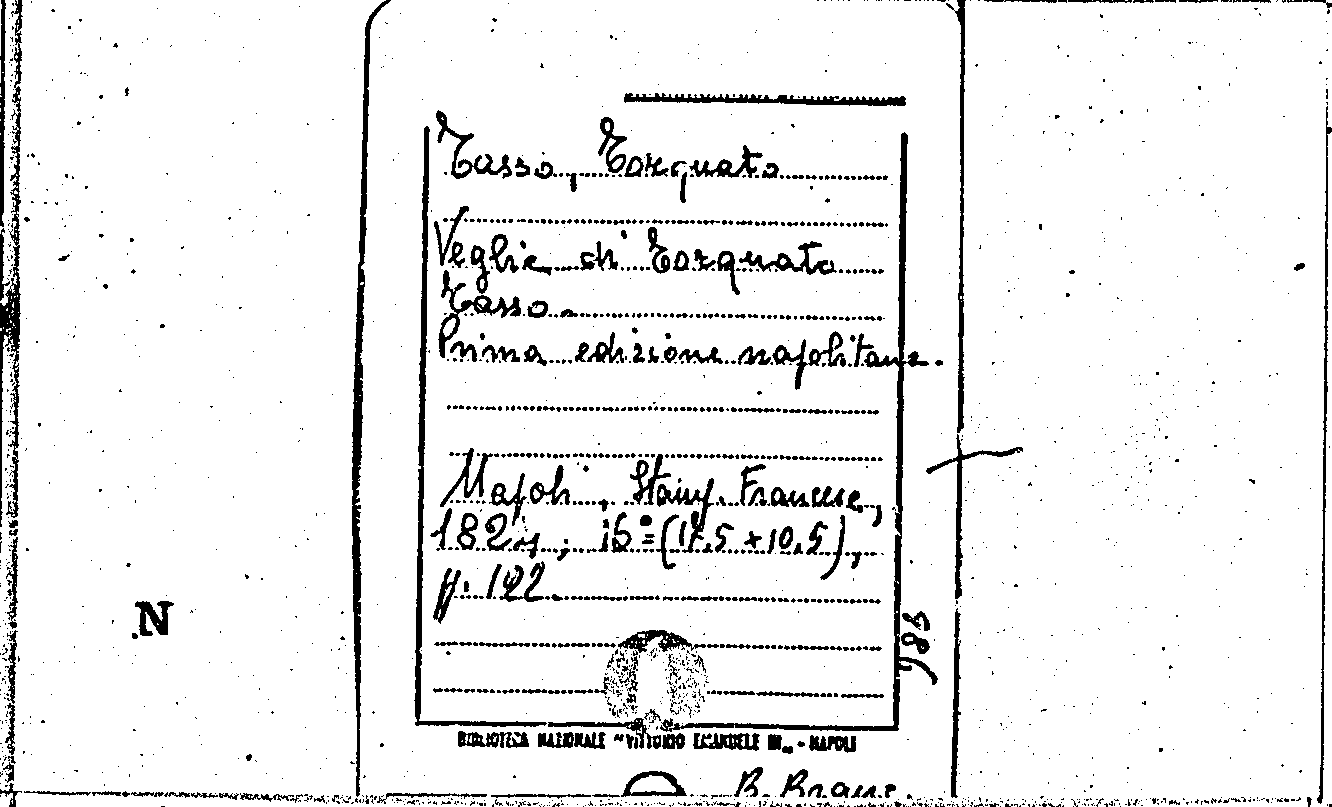 Tasso, Torquato
Veglie di Torquato
Tasso.
Prima edizione napolitana.
Napoli, Stamp. Francese,
16º (17,5 + 10,5),
p. 122.
983
N
BIBLIOTECA NAZIONALE "VITTORIO EMANUELE III" - NAPOLI
B. Branc.